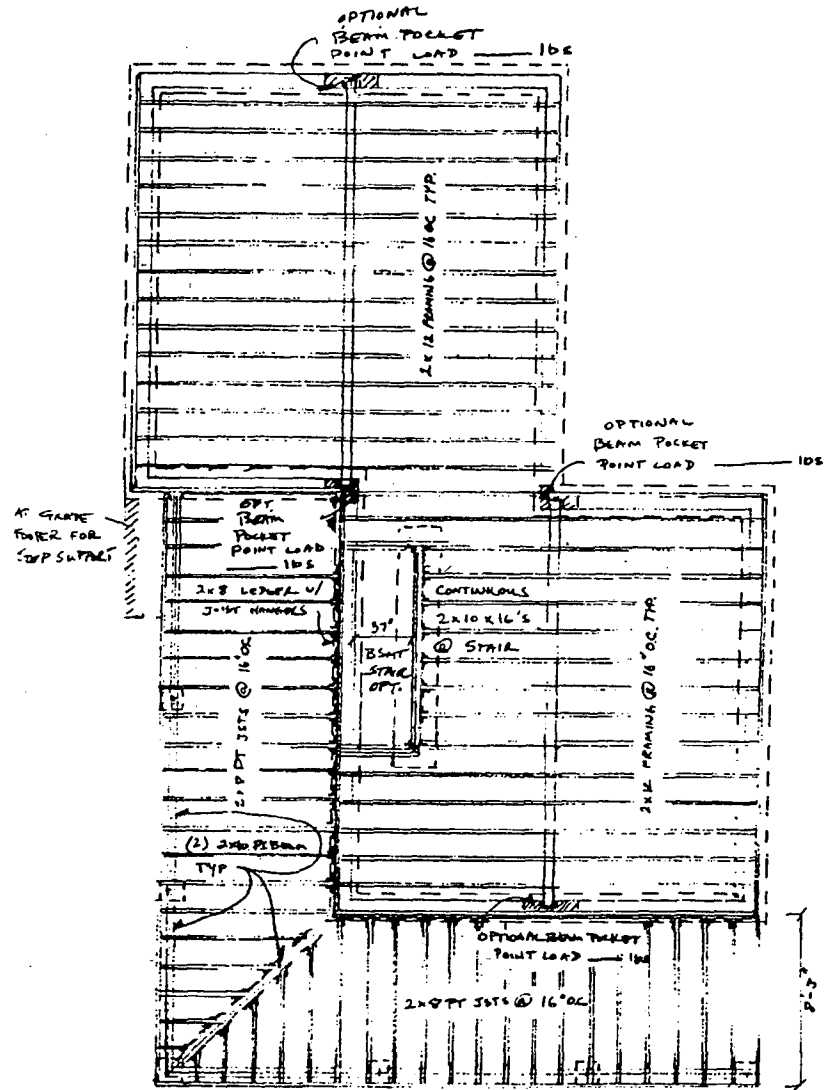 OPTIONAL
BEAM POCKET
POINT LOAD ——— lbs
2x12 FRAMING @ 16 OC TYP.
OPTIONAL
BEAM POCKET
POINT LOAD ——— lbs
AT GRADE
FOOTER FOR
STEP SUPPORT
OPT.
BEAM
POCKET
POINT LOAD
—— lbs
2x8 LEDGER W/
JOIST HANGERS
CONTINUOUS
2x10x16's
@ STAIR
37"
BSMT
STAIR
OPT.
2x8 PT JSTS @ 16"OC
2x12 FRAMING @ 16" O.C. TYP.
(2) 2x10 PT BEAM
TYP
OPTIONAL BEAM POCKET
POINT LOAD —— lbs
2x8 PT JSTS @ 16"OC
8'-3"